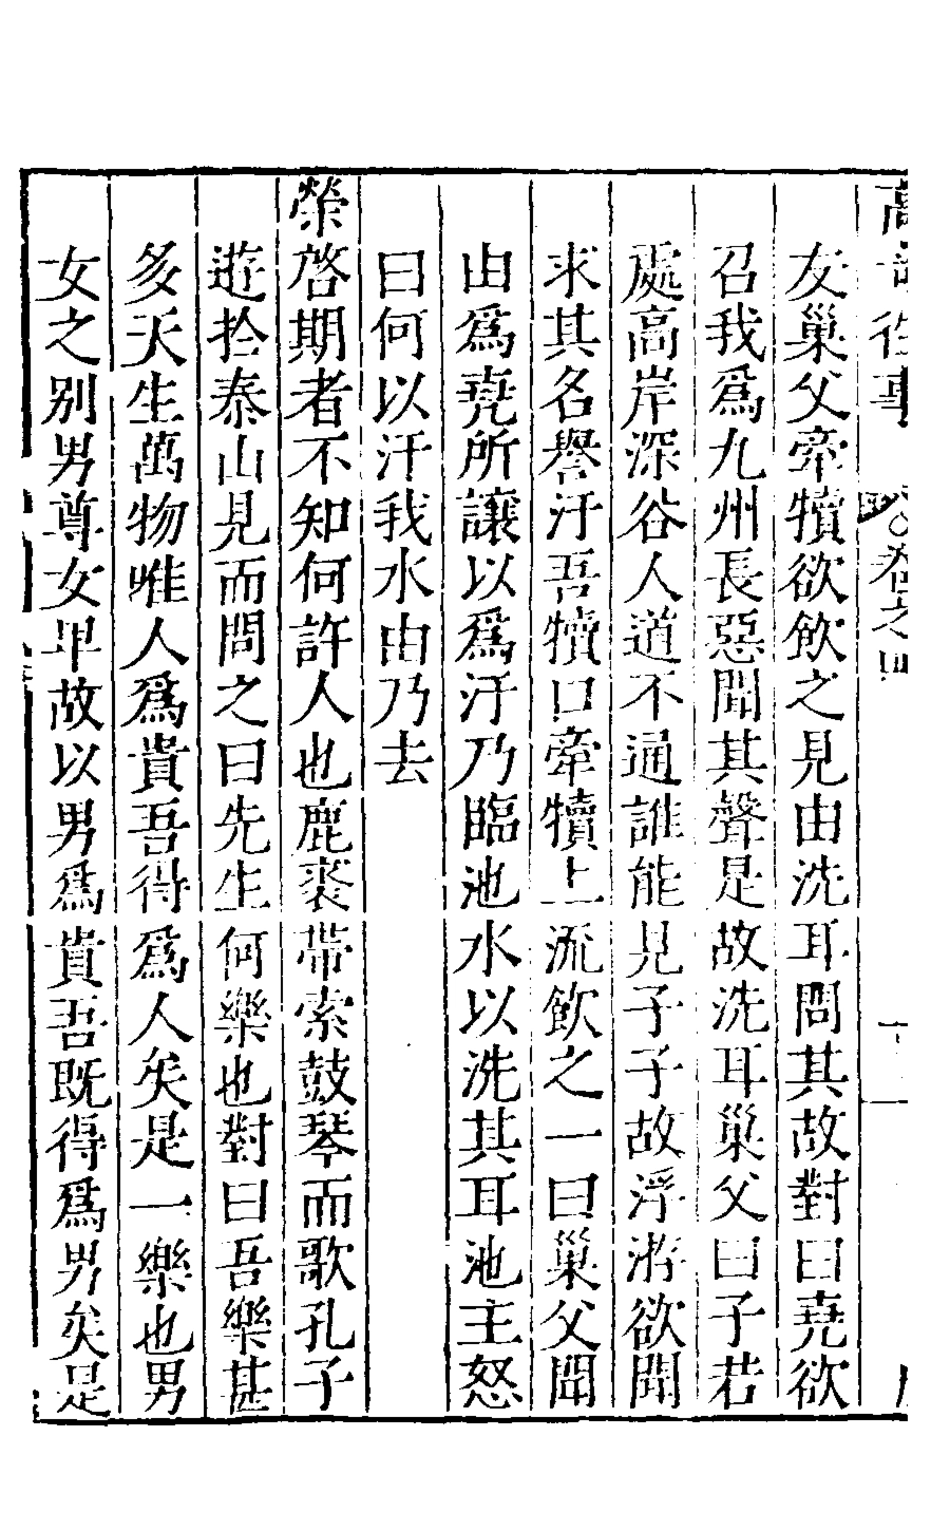 友巢父牽犢欲飲之見由洗耳問其故對曰堯欲
召我爲九州長惡聞其聲是故洗耳巢父曰子若
處高岸深谷人道不通誰能見子子故浮游欲聞
求其名譽汙吾犢口牽犢上流飲之一曰巢父聞
由爲堯所讓以爲汙乃臨池水以洗其耳池主怒
曰何以汙我水由乃去
榮啓期者不知何許人也鹿裘帶索鼓琴而歌孔子
遊於泰山見而問之曰先生何樂也對曰吾樂甚
多天生萬物唯人爲貴吾得爲人矣是一樂也男
女之别男尊女卑故以男爲貴吾既得爲男矣是